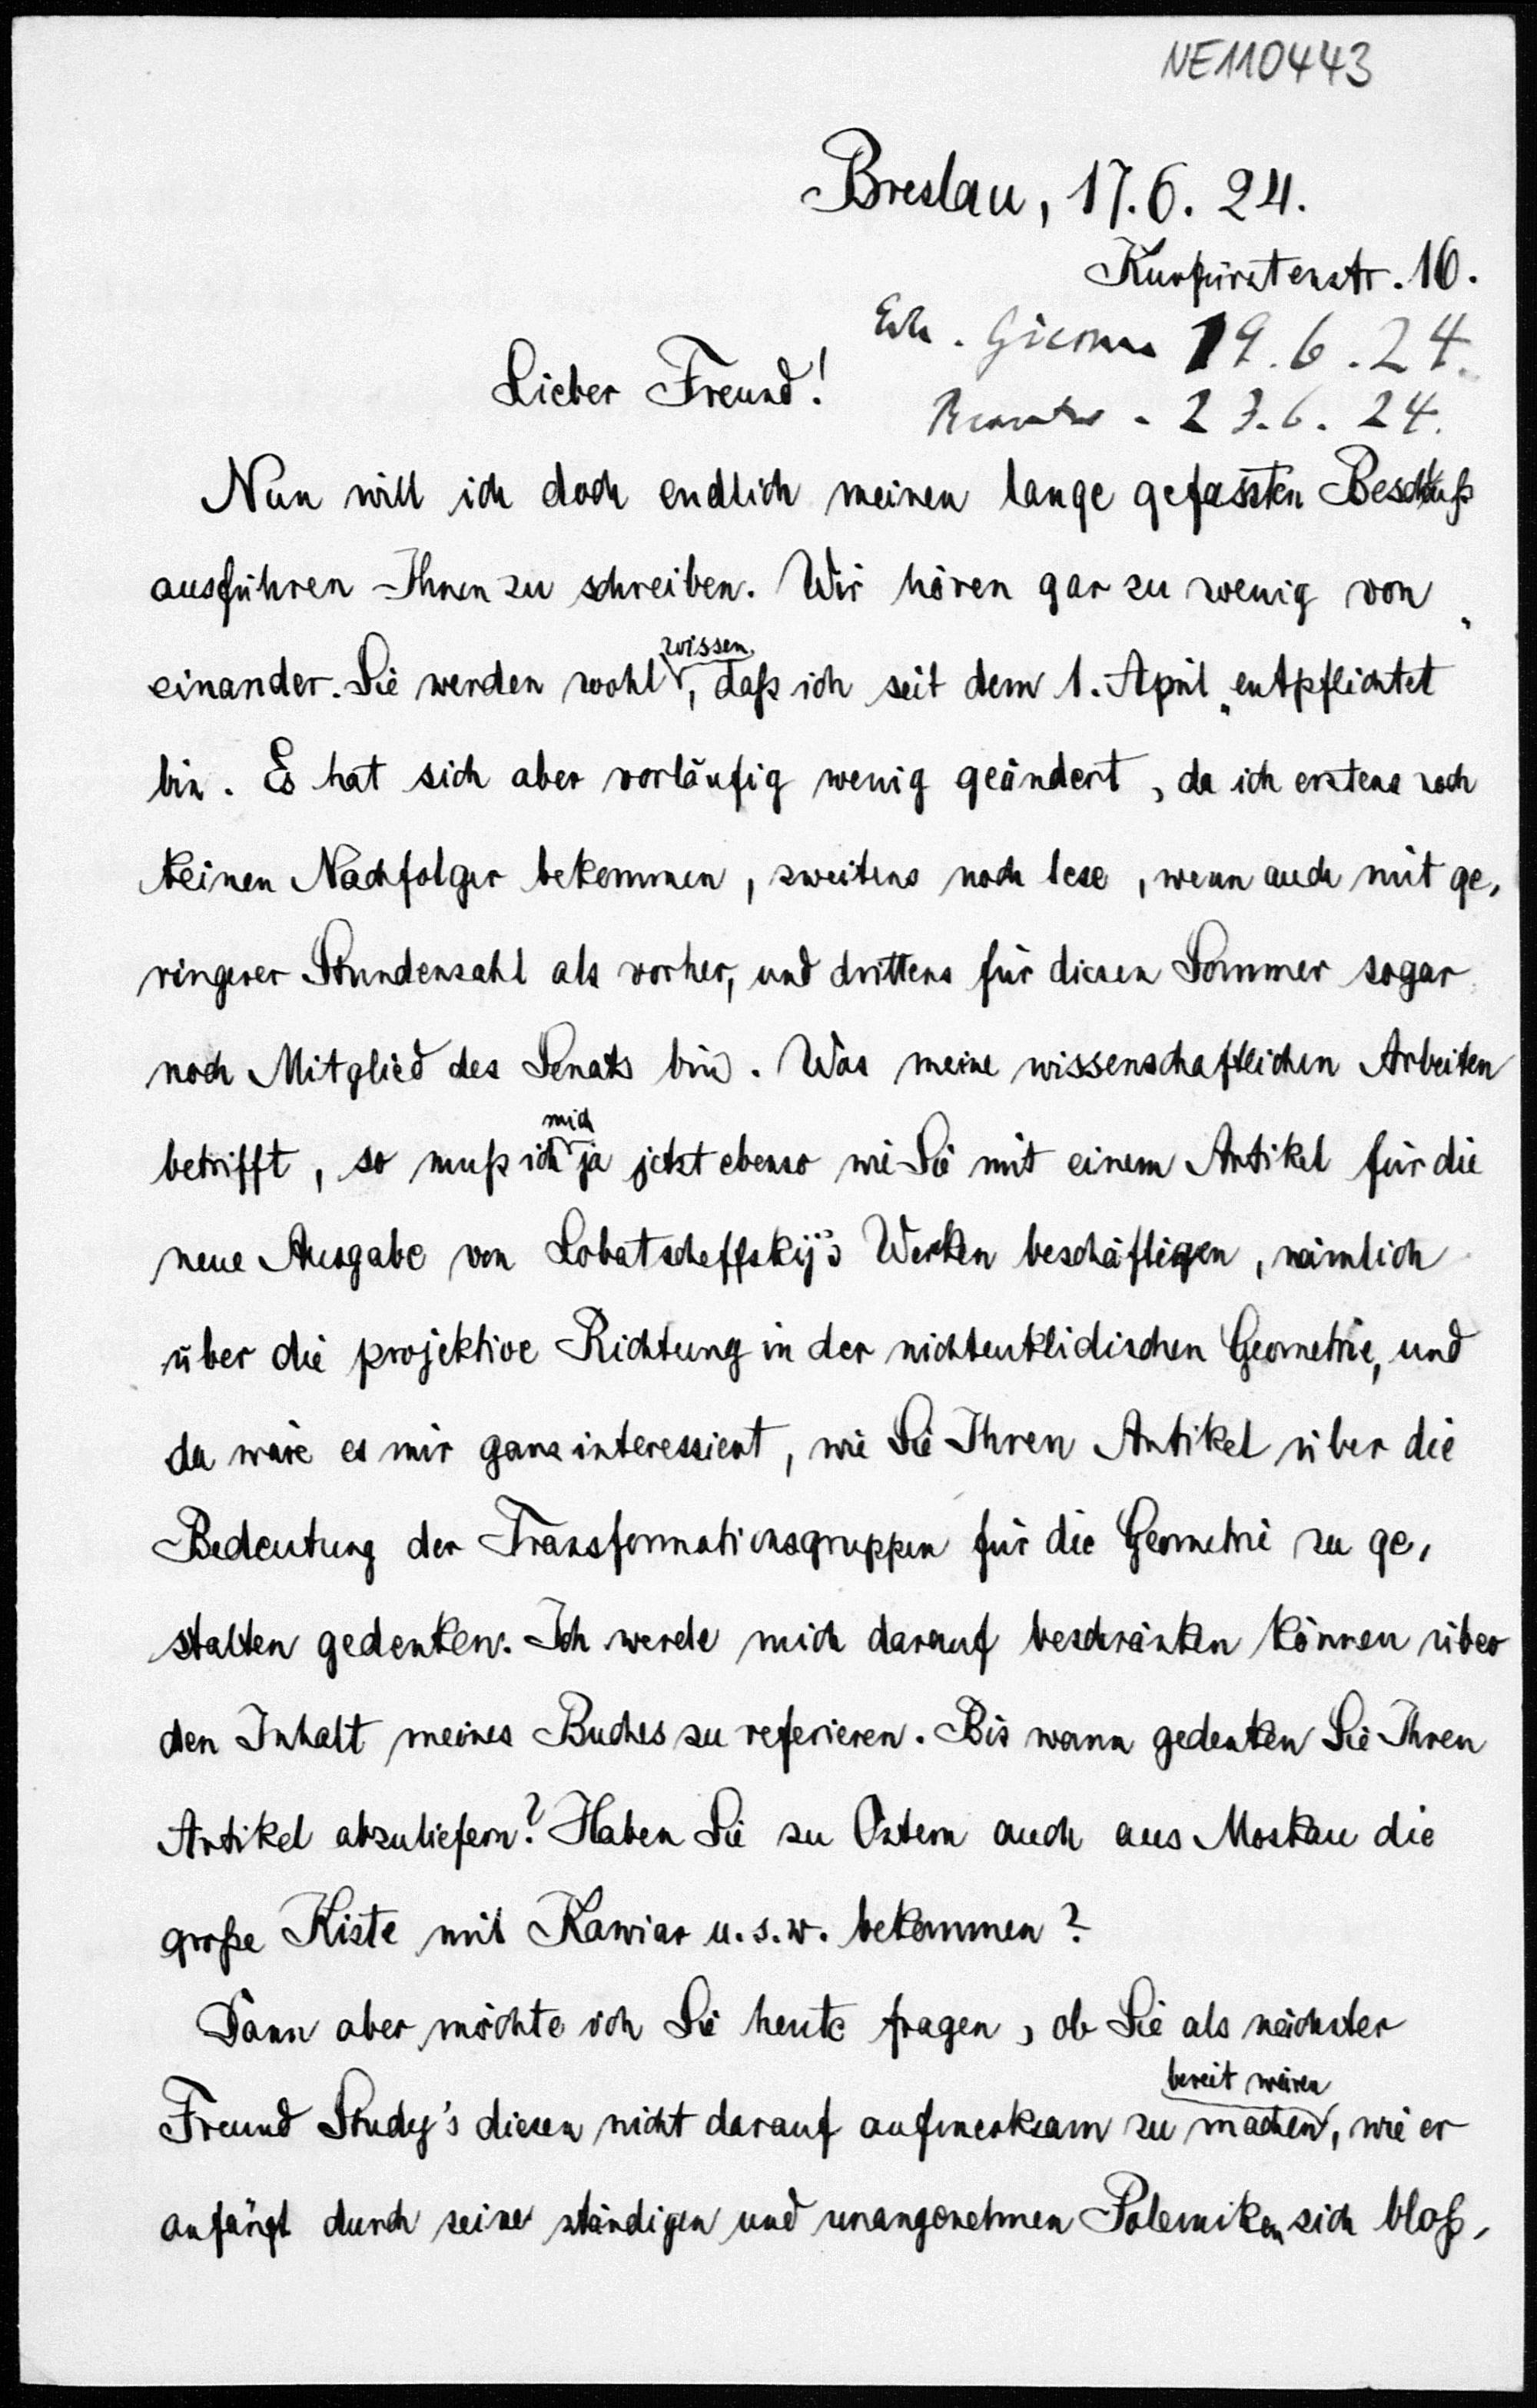 NE110443
Breslau, 17.6.24.
Kurfürstenstr. 16.
Erh. Giessen 19.6.24.
Lieber Freund!
Beantw. 23.6.24.
Nun will ich doch endlich meinen lange gefassten Beschluß
ausführen Ihnen zu schreiben. Wir hören gar zu wenig von
einander. Sie werden wohl wissen, daß ich seit dem 1. April „entpflichtet“
bin. Es hat sich aber vorläufig wenig geändert, da ich erstens noch
keinen Nachfolger bekommen, zweitens noch lese, wenn auch mit ge-
ringerer Stundenzahl als vorher, und drittens für diesen Sommer sogar
noch Mitglied des Senats bin. Was meine wissenschaftlichen Arbeiten
betrifft, so muß ich mich ja jetzt ebenso wie Sie mit einem Artikel für die
neue Ausgabe von Lobatscheffskij's Werken beschäftigen, nämlich
über die projektive Richtung in der nichteuklidischen Geometrie, und
da wäre es mir ganz interessient, wie Sie Ihren Artikel über die
Bedeutung der Transformationsgruppen für die Geometrie zu ge-
stalten gedenken. Ich werde mich darauf beschränken können über
den Inhalt meines Buches zu referieren. Bis wann gedenken Sie Ihren
Artikel abzuliefern? Haben Sie zu Ostern auch aus Moskau die
große Kiste mit Kawiar u.s.w. bekommen?
Dann aber möchte ich Sie heute fragen, ob Sie als nächster
Freund Study's diesen nicht darauf aufmerksam zu machen bereit wären, wie er
anfängt durch seine ständigen und unangenehmen Polemiken sich bloß-